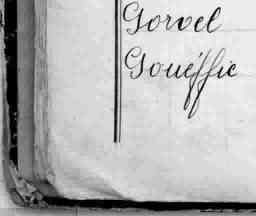 Gorvel
Gouéffic